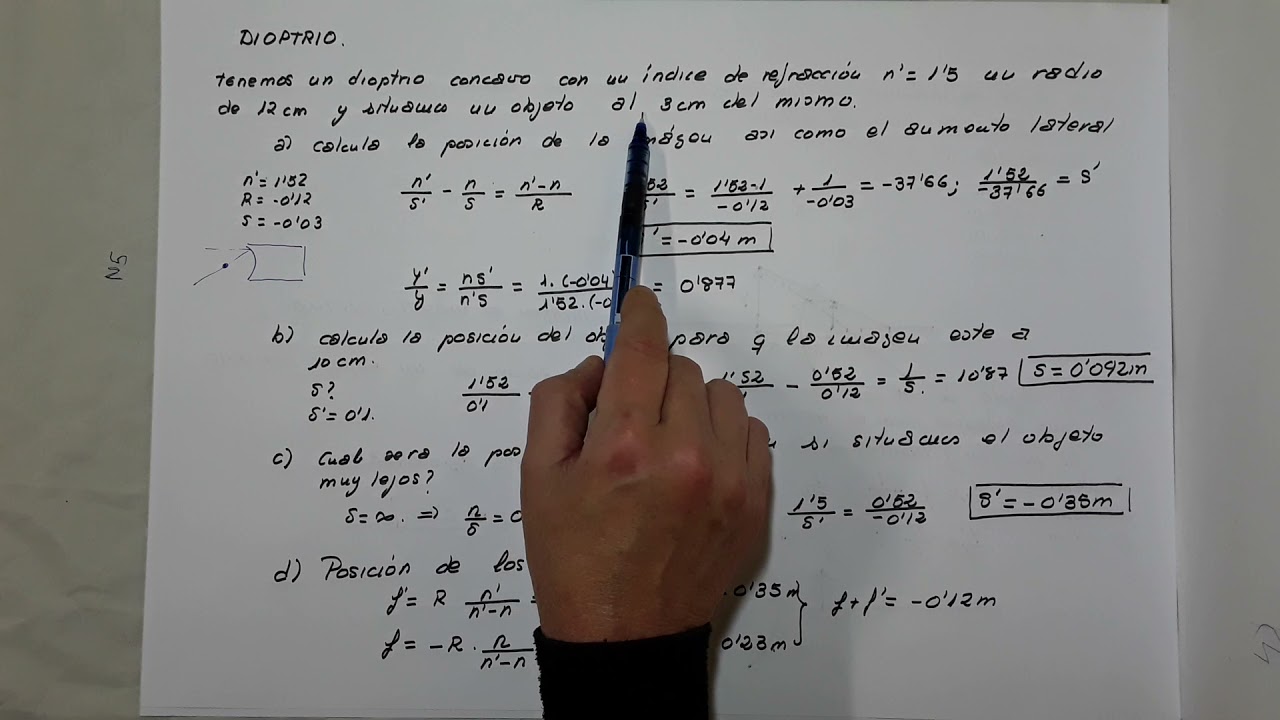 DIOPTRIO.
tenemos un dioptrio concavo con un índice de refracción n'= 1'5 un radio
de 12 cm y situamos un objeto al 3 cm del mismo.
a) calcula la posición de la imagen asi como el aumento lateral
n' = 1'52
R = -0'12
s = -0'03
n'/s' - n/s = n'-n/R
52/s' = 1'52-1/-0'12 + 1/-0'03 = -37'66; 1'52/-37'66 = s'
' = -0'04 m
y'/y = ns'/n's = 1.(-0'04)/1'52.(-0 = 0'877
N5
b) calcula la posición del ob para q la imagen este a
10 cm.
s?
s' = 0'1.
1'52/0'1 - 0'52/0'12 = 1/s = 10'87 s = 0'092m
c) cual sera la pos si situamos el objeto
muy lejos?
s = ∞. ⇒ n/s = 0 1'5/s' = 0'52/-0'12 s' = -0'35m
d) Posición de los
f' = R n'/n'-n = 0'35 m
f = -R . n/n'-n 0'23 m
f + f' = -0'12 m